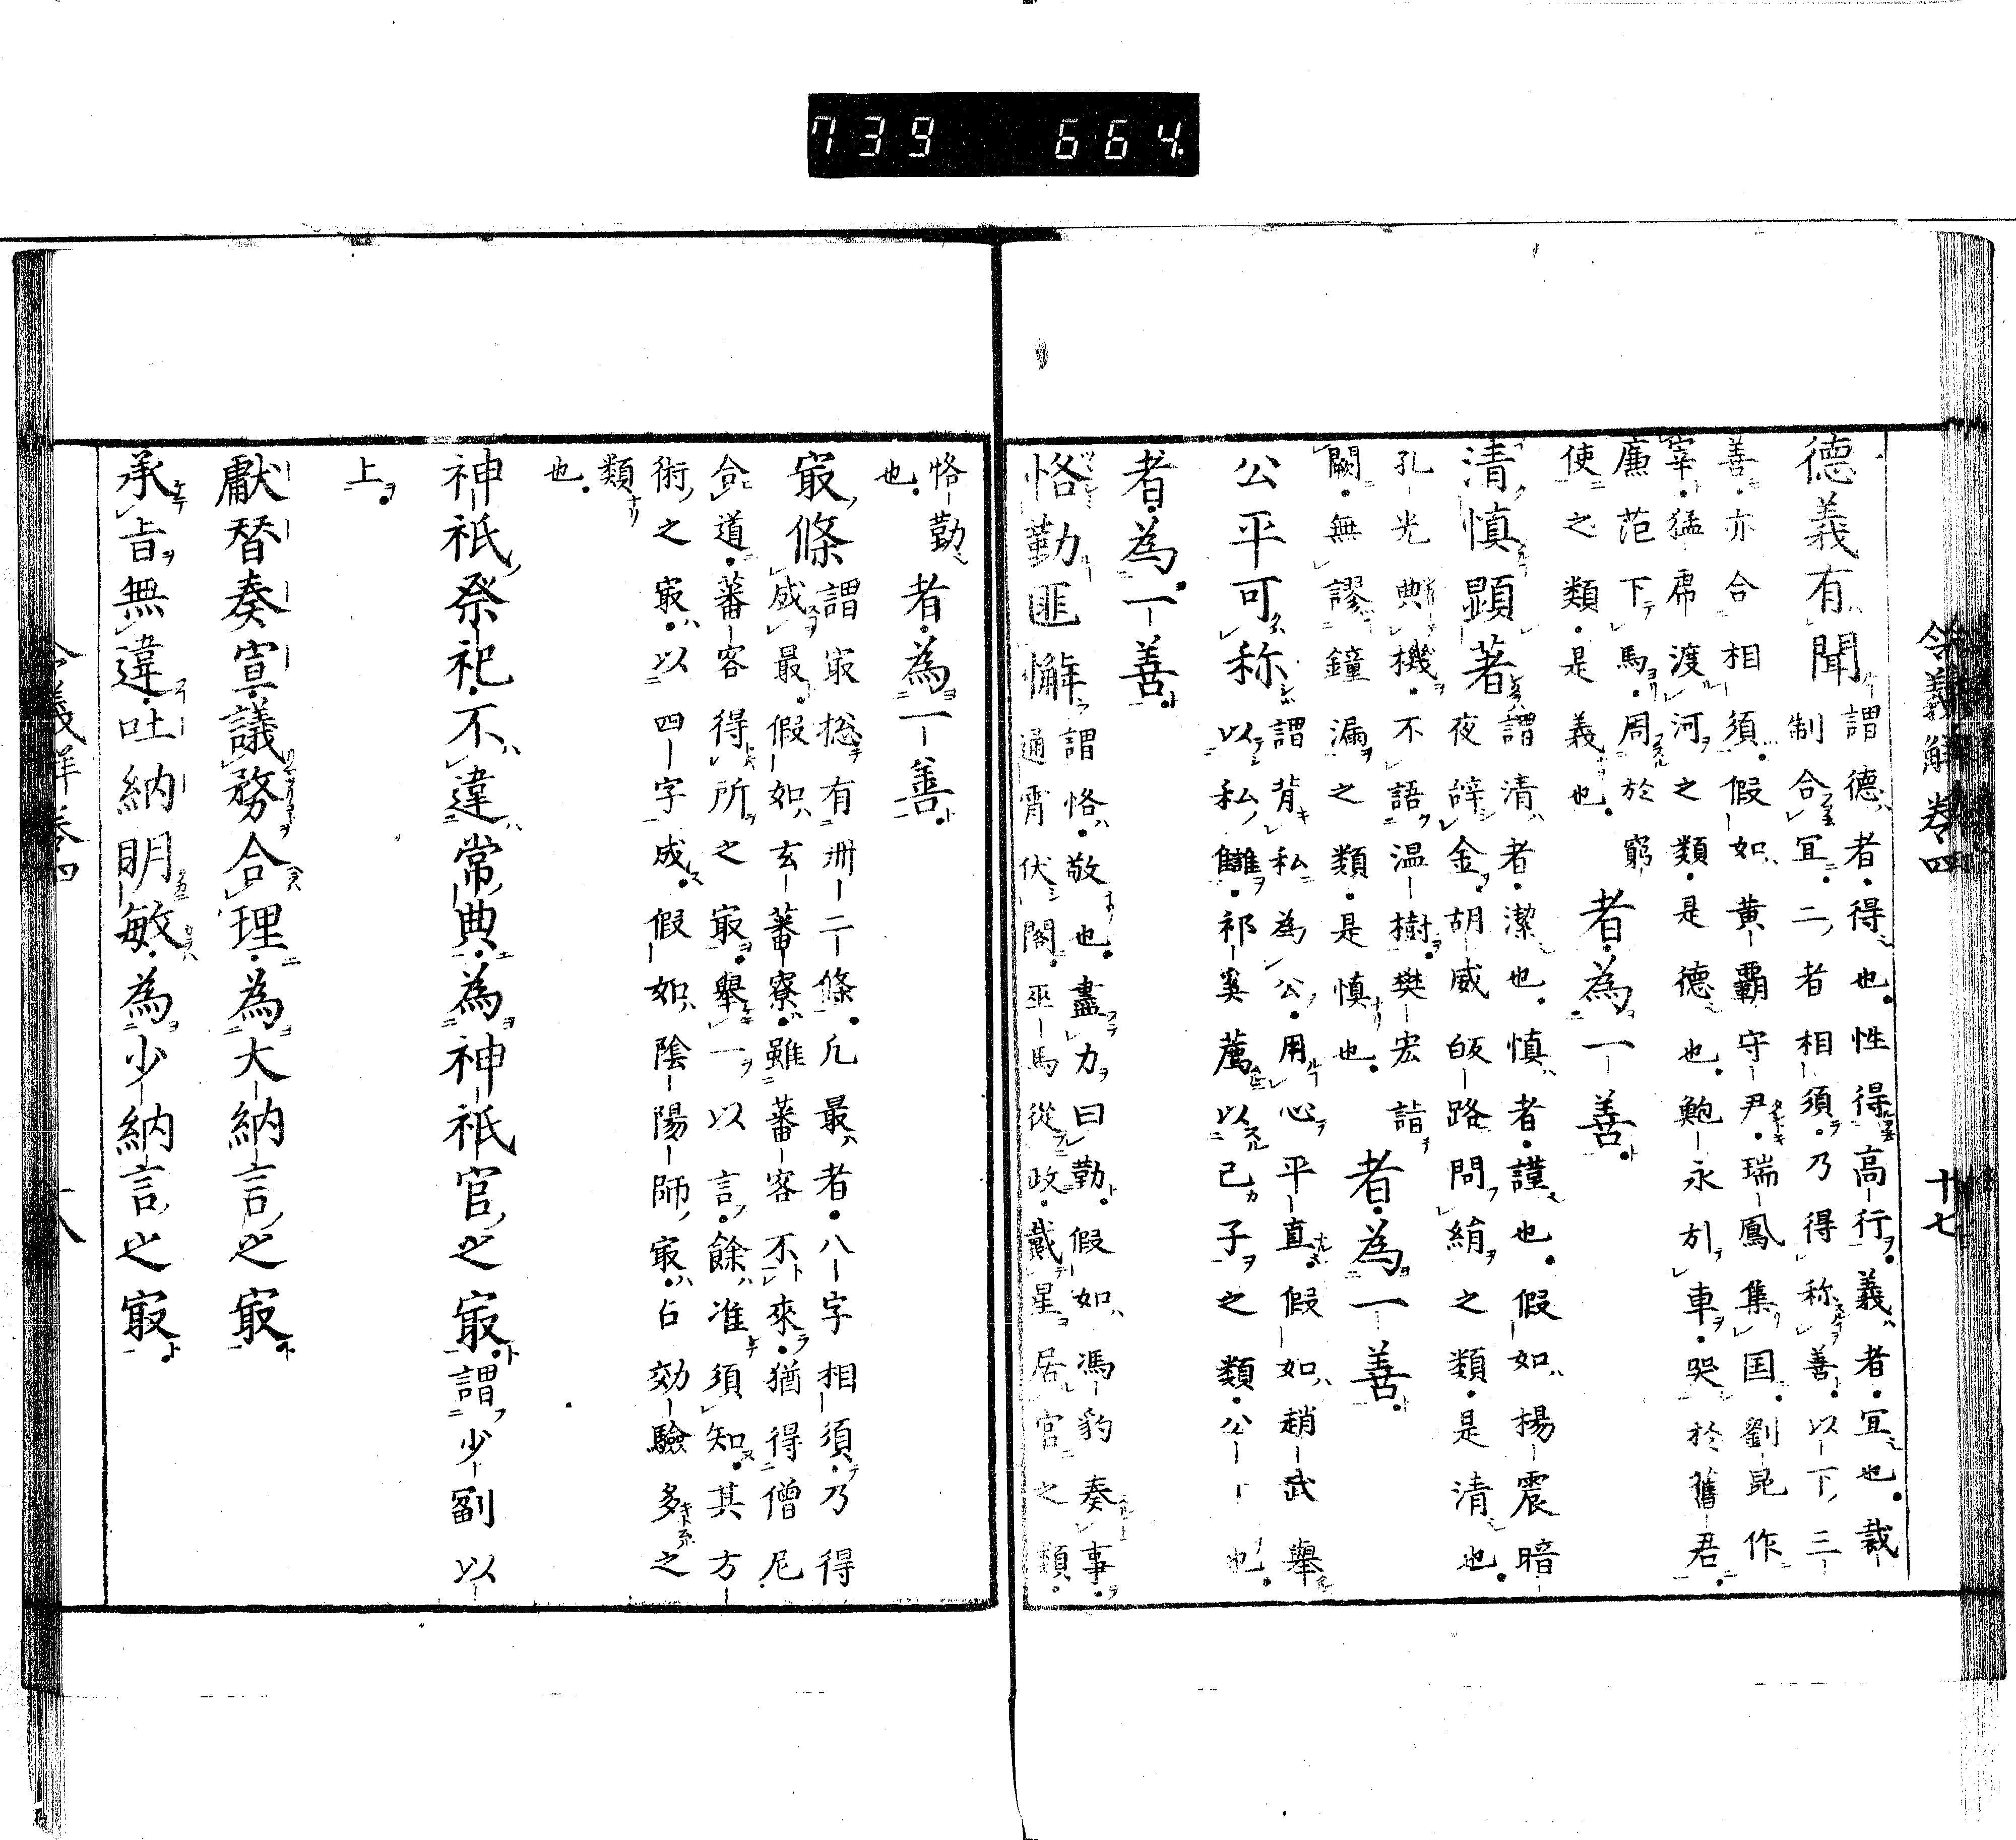 739 664.
令義解卷四 十七
德義有聞謂德者得也性得高行義者宜也裁
制合宜二者相須乃得称善以下三
善亦合相須假如黄霸守尹瑞鳳集国劉昆作
宰猛虎渡河之類是德也鮑永刓車哭於舊君
廉范下馬周於窮
使之類是義也
者為一善
清慎顕著謂清者潔也慎者謹也假如楊震暗
夜辞金胡威皈路問絹之類是清也
孔光典機不語温樹樊宏詣
闕無謬鐘漏之類是慎也
者為一善
公平可称謂背私為公用心平直假如趙武舉
以私讎祁奚薦以己子之類公一一也
者為一善
恪勤匪懈謂恪敬也盡力曰勤假如馮豹奏事
通霄伏閣巫馬從政戴星居官之類
恪勤
也
者為一善
冣條謂冣捴有卌二條凡最者八字相須乃得
成最假如玄蕃寮雖蕃客不來猶得僧尼
合道蕃客得所之冣舉一以言餘准須知其方
術之冣以四字成假如陰陽師冣占効驗多之
類
也
神祇祭祀不違常典為神祇官之冣謂少副以
上
獻替奏宣議務合理為大納言之冣
承旨無違吐納明敏為少納言之冣